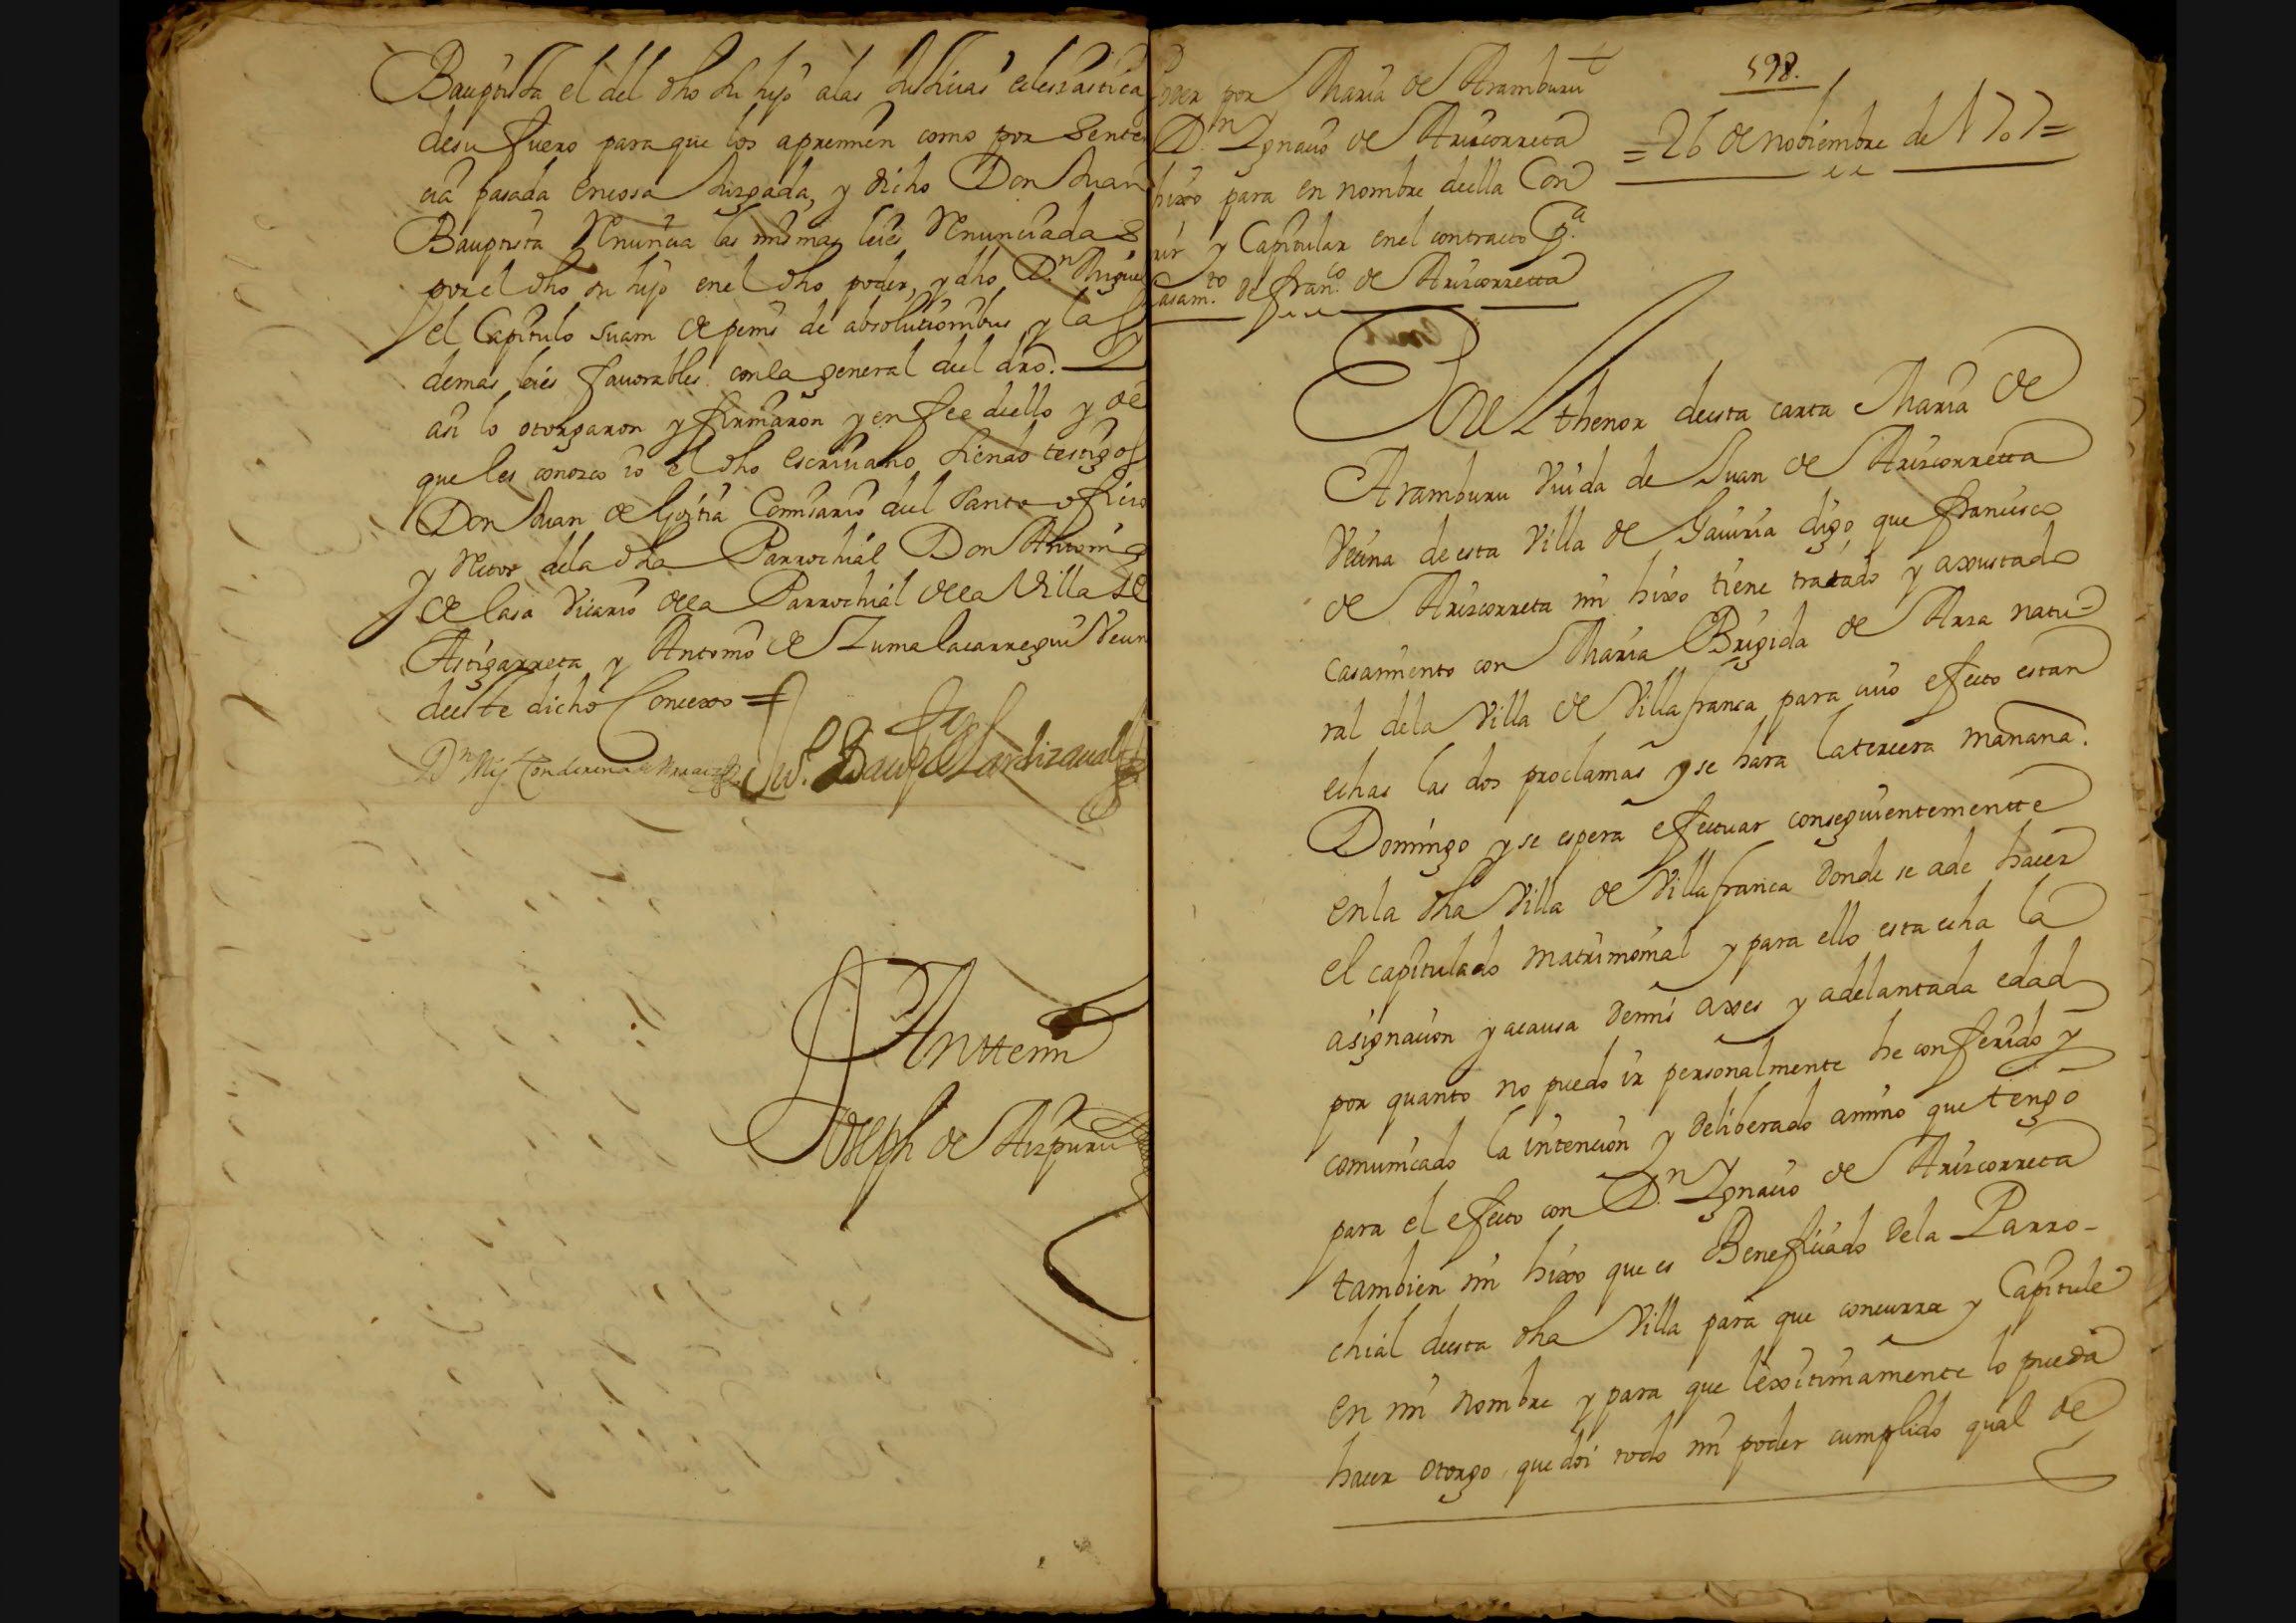 Bauptista el del dho su hijo a las Justicias eclesiasticas
de su fuero para que los apremien como por senten
cia pasada en cosa Juzgada, y dicho Don Juan
Bauptista Renuncia las mismas leies Renunciadas
por el dho su hijo en el dho poder, y dho D.n Miguel
el Capitulo suam de penis de absolutionibus y las
demas leies fauorables con la general del dro.
asi lo otorgaron y firmaron y en fee dello y de
que les conozco io el dho escriuano siendo testigos
Don Juan de Goitia Comisario del santo oficio
y Retor de la dha Parrochial Don Antonio
de lasa Vicario de la Parrochial de la Villa de
Astigarreta y Antonio de Zumalacarregui Vecino
deeste dicho Concexo =
Ju.º Baup.ta de Lardizaual
Anttemi
Joseph de Aizpuru
598.
Poder por Maria de Aramburu
D.n Ygnacio de Arizcorreta
hixo para en nombre della Con
rir y Capitular en el contracto p.a
Casam.to de fran.co de Arizcorretta
= 26 de nobiembre de 1707 =
Por el thenor deesta carta Maria de
Aramburu Viuda de Juan de Arizcorretta
Vecina de esta Villa de Gauiria digo, que francisco
de Arizcorreta mi hixo tiene tratado y axustado
casamiento con Maria Brigida de Arza natu-
ral de la Villa de Villafranca para cuio efecto estan
echas las dos proclamas y se hara la tercera mañana.
Domingo y se espera efectuar conseguientementte
en la dha Villa de Villafranca donde se ade hacer
el capitulado matrimonial y para ello esta echa la
asignacion y a causa de mis axes y adelantada edad
por quanto no puedo ir personalmente he conferido y
comunicado la intencion y deliberado animo que tengo
para el efecto con D.n Ygnacio de Arizcorreta
tambien mi hixo que es Beneficiado de la Parro-
chial deesta dha Villa para que concurra y Capitule
en mi nombre y para que lexitimamente lo pueda
hacer otorgo que doi todo mi poder cumplido qual de